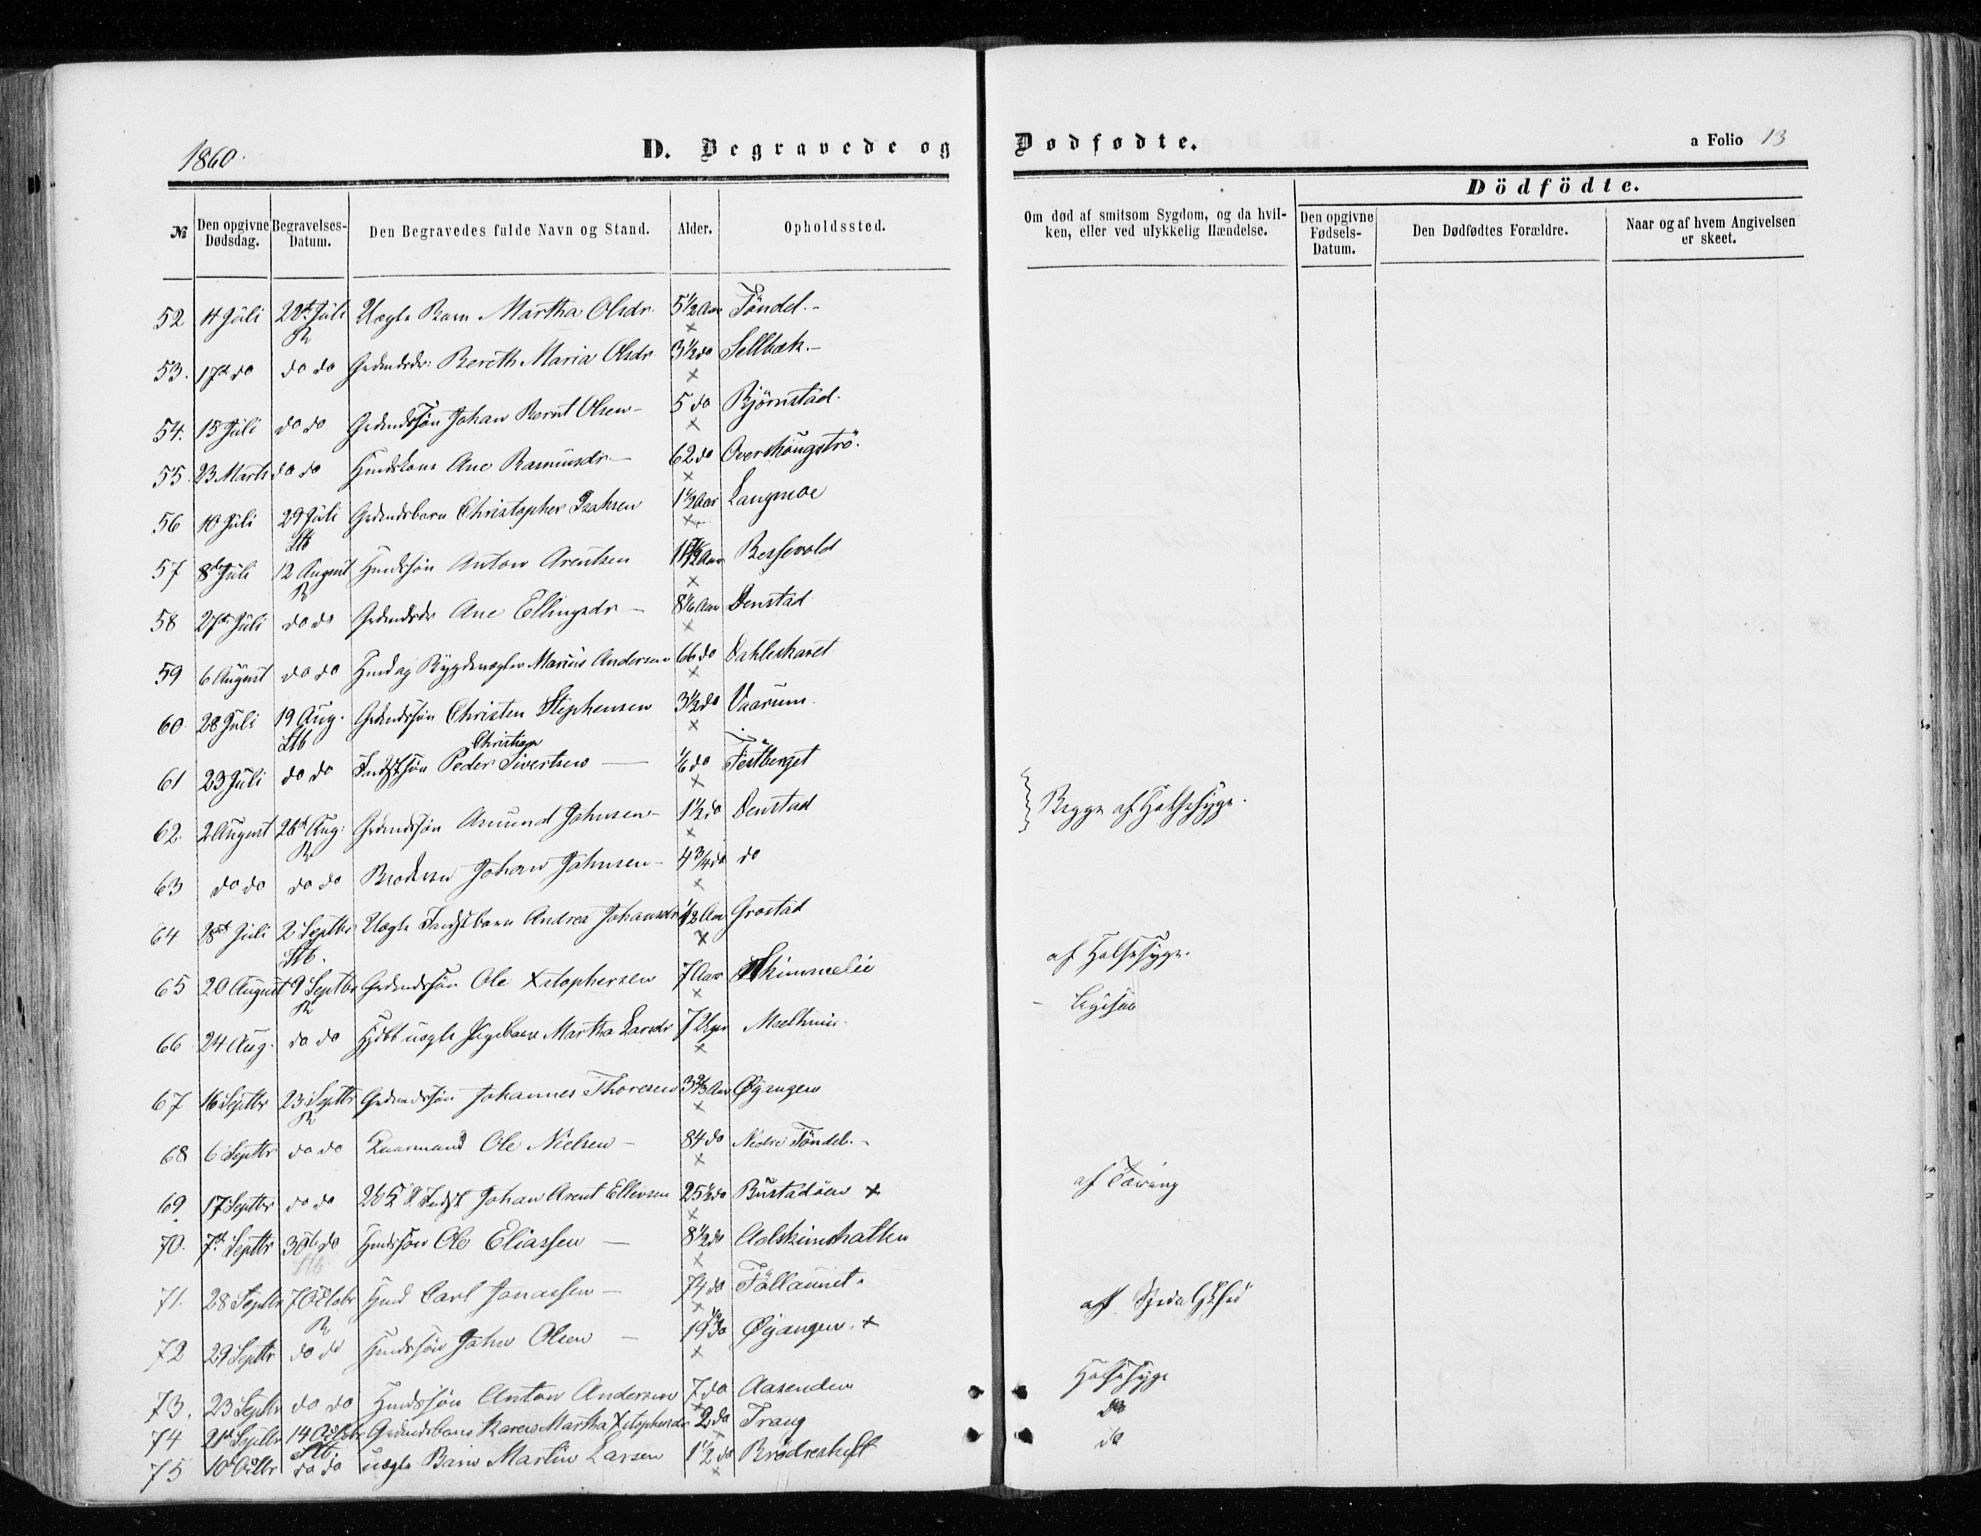 1860.
D. Begravede og Dødfødte.
a Folio 13
№
Den opgivne Dødsdag.
Begravelses-Datum.
Den Begravedes fulde Navn og Stand.
Alder.
Opholdssted.
Om død af smitsom Sygdom, og da hvilken, eller ved ulykkelig Hændelse.
Dödfödte.
Den opgivne Fødsels-Datum.
Den Dødfødtes Forældre.
Naar og af hvem Angivelsen er skeet.
52 14 Juli 22 Juli R Uægte Barn Martha Olsdr. 5½ Aar Töndel.
53. 17 do do do Grdmdsdr: Bereth Maria Olsdr 3½ do Sellbæk.
54. 15 Juli do do Grdmdssøn Johan Bernt Olsen 5 do Bjørnstad.
55 23 Marts do do Hmdskone Ane Rasmusdr 62 do Overskougstrø.
56 10 Juli 29 Juli Stb Grdmdsbarn Christopher Isaksen 1½ Aar Langmoe
57 8de Juli 12 August R Hmdssøn Anton Arentsen Aar
58 27de Juli do do Grdmdsdr Ane Ellingsdr 8 Aar Denstad
59 6 August do do Hmd og Marius Andersen 66 do Dahleskaret
60. 28 Juli 19 Aug. Stb Grdmdssøn Christen Stephensen 3½ do Vaarum.
61 23 Juli do do Indstsøn Peder Christian Sivertsen ⅙ do
62. 2 August 26 Aug: R Grdmdssøn Amund Johnsen 1½ do Denstad Begge af Halssyge.
63 do do do do Broderen Johan Johnsen 4¾ do do
64 28de Juli 2 Septbr Stb. Uægte Indstbarn Andrea Johansdr ½ Aar Grostad af Halssyge.
65 20 August 9 Septbr R Grdmdssøn Ole Xstophersen 7 Aar Skimmelie Ligesaa
66 24 Aug. do do uægte Pigebarn Martha Larsdr 7 Uger
67 16 Septbr 23 Septbr R Grdmdssøn Johannes Thoresen 3⅔ Aar Øyangen
68 6 Septbr do do Ole Nielsen 84 do Nedre Töndel.
69. 17 Septbr do do Indst Johan Arent Ellevsen 25½ do Bustadöen + af Tæring
70. 7de Septbr 30te do Stb Hmdssøn Ole Eliassen 8½ do
71. 28 Septbr 7 Octobr R Hmd Carl Jonassen 74 do af Spedalskhed
72 29 Septbr do do Hmdssøn John Olsen 19 do Øyangen +
73. 23 Septbr do do Hmdssøn Anton Andersen 7 do Aasenden Halssyge
74 21de Septbr 14 Octobr Stb. Grdmdsbarn Karen Martha Xstophersdr 2 do Trang do
75 10de Octbr do do uægte Barn Martin Larsen 1½ do Brødreskift do